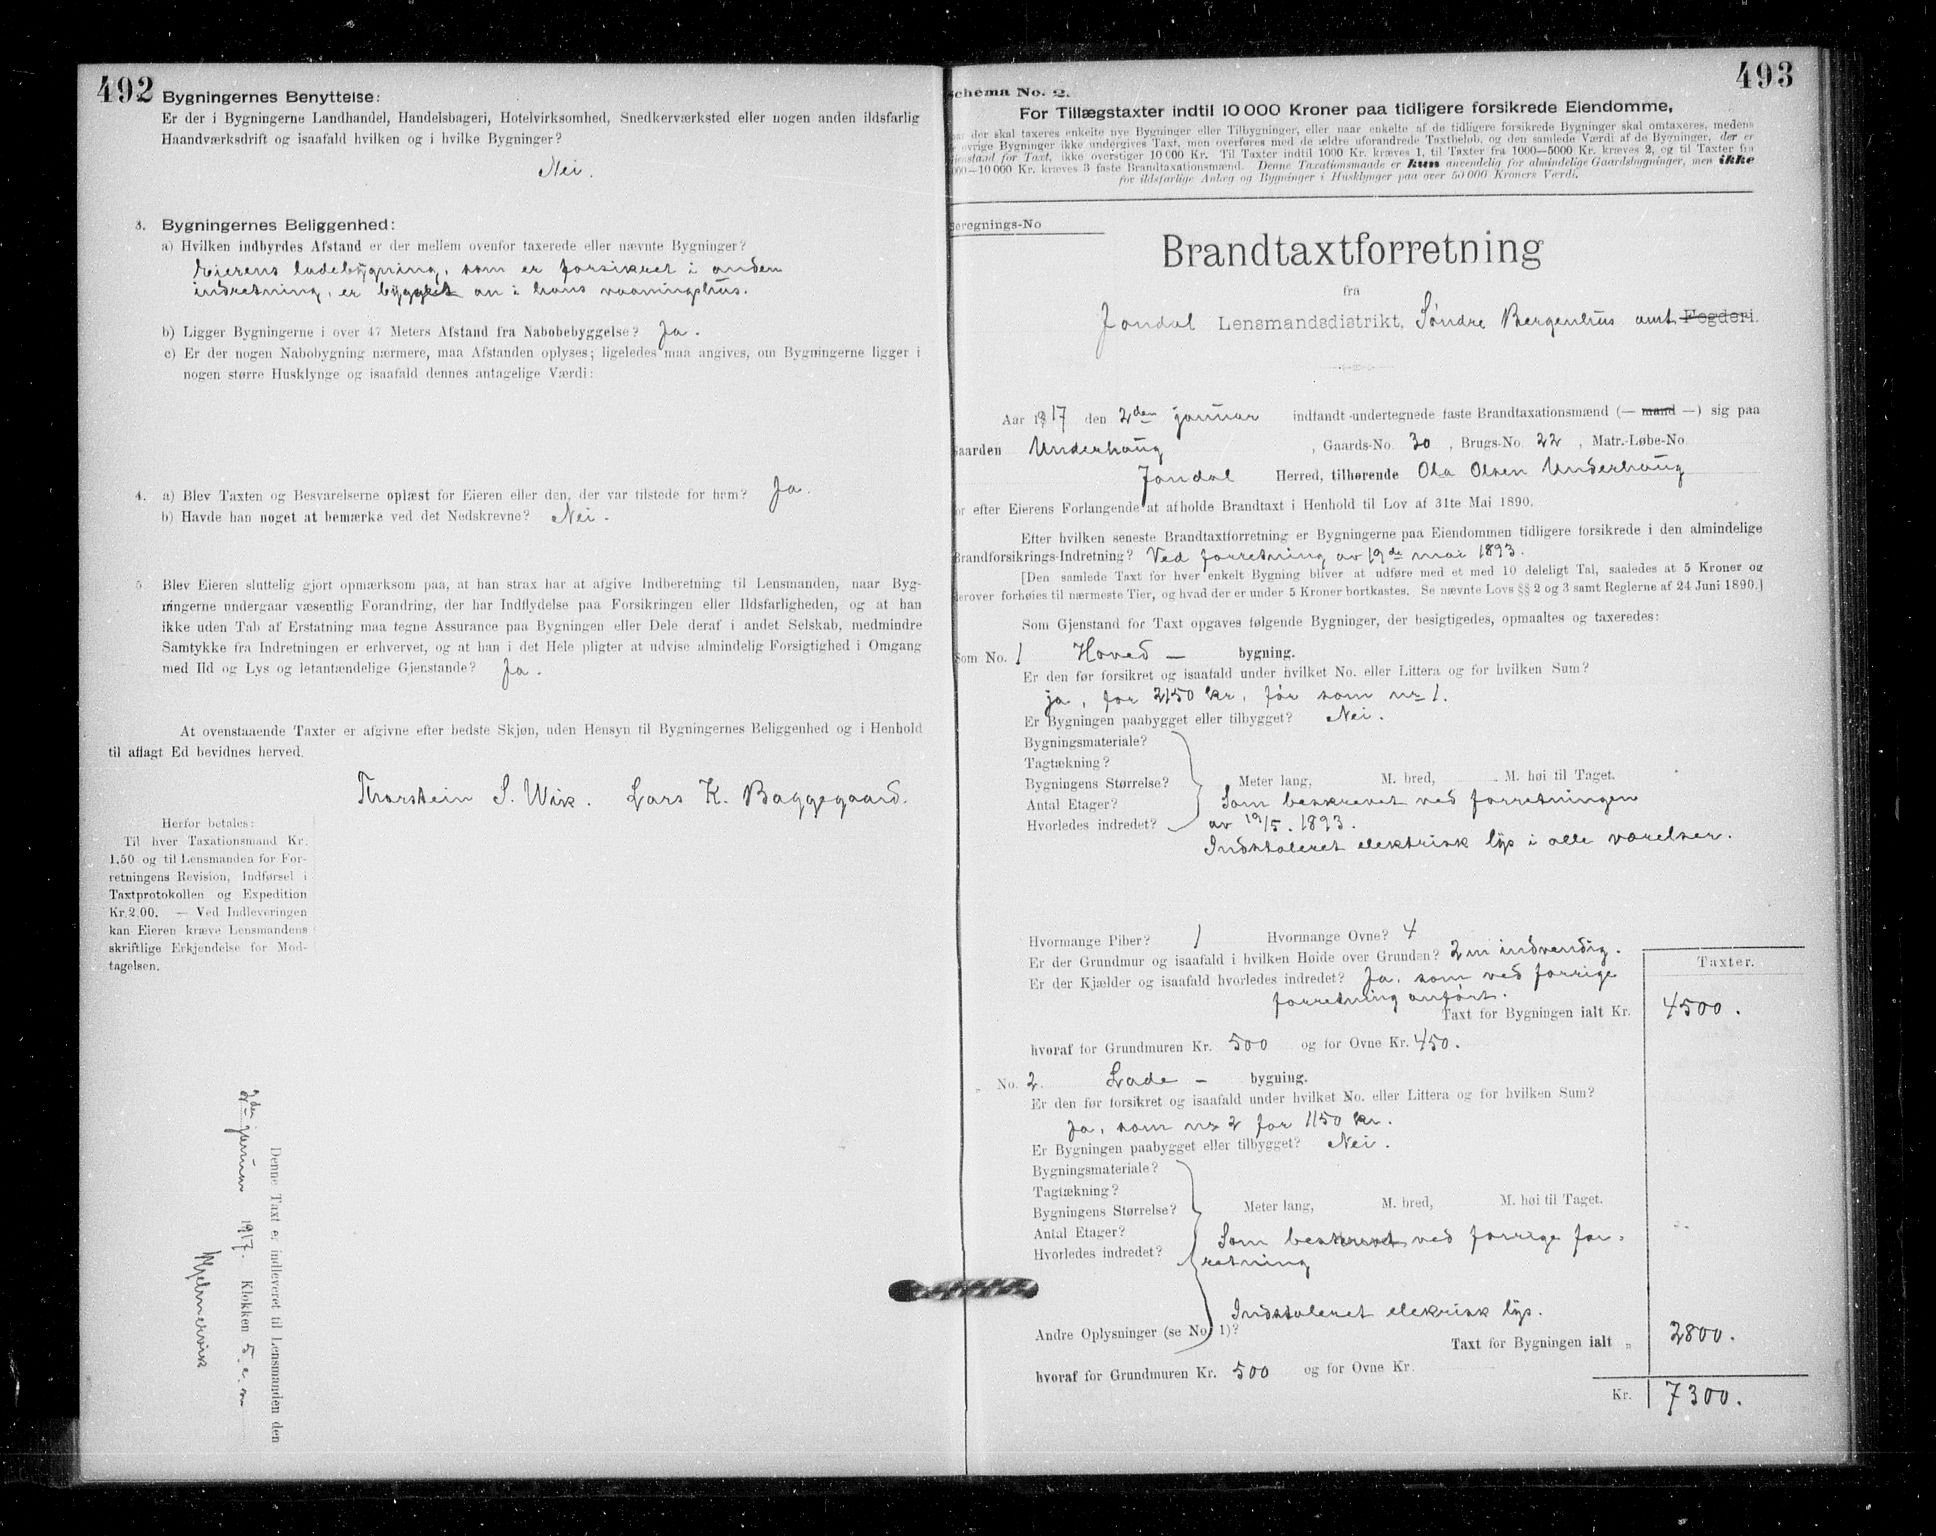 492
Bygningernes Benyttelse:
Er der i Bygningerne Landhandel, Handelsbageri, Hotelvirksomhed, Snedkerværksted eller nogen anden ildsfarlig
Haandværksdrift og isaafald hvilken og i hvilke Bygninger?
Nei.
3. Bygningernes Beliggenhed:
a) Hvilken indbyrdes Afstand er der mellem ovenfor taxerede eller nævnte Bygninger?
Eierens ladebygning, som er forsikret i anden
indretning, er bygget an i hans vaaningshus.
b) Ligger Bygningerne i over 47 Meters Afstand fra Nabobebyggelse? Ja.
c) Er der nogen Nabobygning nærmere, maa Afstanden oplyses; ligeledes maa angives, om Bygningerne ligger i
nogen større Husklynge og isaafald dennes antagelige Værdi:
4. a) Blev Taxten og Besvarelserne oplæst for Eieren eller den, der var tilstede for ham? Ja.
b) Havde han noget at bemærke ved det Nedskrevne? Nei.
5. Blev Eieren sluttelig gjort opmærksom paa, at han strax har at afgive Indberetning til Lensmanden, naar Byg-
ningerne undergaar væsentlig Forandring, der har Indflydelse paa Forsikringen eller Ildsfarligheden, og at han
ikke uden Tab af Erstatning maa tegne Assurance paa Bygningen eller Dele deraf i andet Selskab, medmindre
Samtykke fra Indretningen er erhvervet, og at han i det Hele pligter at udvise almindelig Forsigtighed i Omgang
med Ild og Lys og letantændelige Gjenstande? Ja.
At ovenstaaende Taxter er afgivne efter bedste Skjøn, uden Hensyn til Bygningernes Beliggenhed og i Henhold
til aflagt Ed bevidnes herved.
Thorstein S. Wik. Lars K. Baggegaard.
Herfor betales:
Til hver Taxationsmand Kr.
1,50 og til Lensmanden for For-
retningens Revision, Indførsel i
Taxtprotokollen og Expedition
Kr. 2.00. — Ved Indleveringen
kan Eieren kræve Lensmandens
skriftlige Erkjendelse for Mod-
tagelsen.
Denne Taxt er indleveret til Lensmanden den
2den januar 1917. Klokken 5 e.m
Hjelmervik
493
Schema No. 2.
For Tillægstaxter indtil 10 000 Kroner paa tidligere forsikrede Eiendomme,
naar der skal taxeres enkelte nye Bygninger eller Tilbygninger, eller naar enkelte af de tidligere forsikrede Bygninger skal omtaxeres, medens
de øvrige Bygninger ikke undergives Taxt, men overføres med de ældre uforandrede Taxtbeløb, og den samlede Værdi af de Bygninger, der er
Gjenstand for Taxt, ikke overstiger 10 000 Kr. Til Taxter indtil 1000 Kr. kræves 1, til Taxter fra 1000—5000 Kr. kræves 2, og til Taxter fra
5000—10 000 Kr. kræves 3 faste Brandtaxationsmænd. Denne Taxationsmaade er kun anvendelig for almindelige Gaardsbygninger, men ikke
for ildsfarlige Anlæg og Bygninger i Husklynger paa over 50 000 Kroners Værdi.
Beregnings-No
Brandtaxtforretning
fra
Jondal Lensmandsdistrikt, Søndre Bergenhus amt Fogderi.
Aar 1917 den 2den januar indfandt undertegnede faste Brandtaxationsmænd (— mand —) sig paa
Gaarden Underhaug, Gaards-No. 30, Brugs-No. 22, Matr.-Løbe-No
Jondal Herred, tilhørende Ola Olsen Underhaug
for efter Eierens Forlangende at afholde Brandtaxt i Henhold til Lov af 31te Mai 1890.
Efter hvilken seneste Brandtaxtforretning er Bygningerne paa Eiendommen tidligere forsikrede i den almindelige
Brandforsikrings-Indretning? Ved forretning av 19de mai 1893.
[Den samlede Taxt for hver enkelt Bygning bliver at udføre med et med 10 deleligt Tal, saaledes at 5 Kroner og
derover forhøies til nærmeste Tier, og hvad der er under 5 Kroner bortkastes. Se nævnte Lovs §§ 2 og 3 samt Reglerne af 24 Juni 1890.]
Som Gjenstand for Taxt opgaves følgende Bygninger, der besigtigedes, opmaaltes og taxeredes:
Som No. 1 Hoved — bygning.
Er den før forsikret og isaafald under hvilket No. eller Littera og for hvilken Sum?
ja, for 2150 kr, før som nr 1.
Er Bygningen paabygget eller tilbygget? Nei.
Bygningsmateriale?
Tagtækning?
Bygningens Størrelse? Meter lang, M. bred, M. høi til Taget.
Antal Etager? Som beskrevet ved forretningen
Hvorledes indredet? av 19/5. 1893.
Indstaleret elektrisk lys i alle værelser.
Hvormange Piber? 1 Hvormange Ovne? 4
Er der Grundmur og isaafald i hvilken Høide over Grunden? 2 m indvendig.
Er der Kjælder og isaafald hvorledes indredet? Ja, som ved forrige
forretning anført.
Taxter.
Taxt for Bygningen ialt Kr. 4500.
hvoraf for Grundmuren Kr. 500 og for Ovne Kr. 450.
„ No. 2. Lade — bygning.
Er den før forsikret og isaafald under hvilket No. eller Littera og for hvilken Sum?
Ja, som nr 2 for 1150 kr.
Er Bygningen paabygget eller tilbygget? Nei.
Bygningsmateriale?
Tagtækning?
Bygningens Størrelse? Meter lang, M. bred, M. høi til Taget.
Antal Etager?
Hvorledes indredet? Som beskrevet ved forrige for-
retning
Indstaleret elekrisk lys.
Andre Oplysninger (se No. 1)?
Taxt for Bygningen ialt „ 2800.
hvoraf for Grundmuren Kr. 500 og for Ovne Kr.
Kr. 7300.